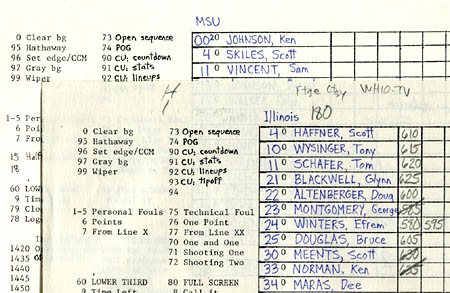 MSU
0 Clear bg 73 Open sequence 00 20 JOHNSON, Ken
95 Hathaway 74 POG 4 0 SKILES, Scott
96 Set edge/CCM 90 CU: countdown 11 0 VINCENT, Sam
97 Gray bg 91 CU: stats
99 Wiper 92 CU: lineups
Ftge Ctsy WHIO-TV
Illinois 180
0 Clear bg 73 Open sequence 4 0 HAFFNER, Scott 610
95 Hathaway 74 POG 10 0 WYSINGER, Tony 615
96 Set edge/CCM 90 CU: countdown 11 0 SCHAFER, Tom 620
97 Gray bg 91 CU: stats 21 0 BLACKWELL, Glynn 625
99 Wiper 92 CU: lineups 22 0 ALTENBERGER, Doug 600
93 CU: tipoff 23 0 MONTGOMERY, George
94 24 0 WINTERS, Efrem 590 595
1-5 Personal Fouls 75 Technical Foul 25 0 DOUGLAS, Bruce 605
6 Points 76 One Point 30 0 MEENTS, Scott
7 From Line X 77 From Line XX 33 0 NORMAN, Ken
70 One and One 34 0 MARAS, Dee
71 Shooting One
72 Shooting Two
60 LOWER THIRD 80 FULL SCREEN
9 Time Left 8 Call it
1-5 Per
6 Poi
7 Fro
15 Half
18
60 LOW
9 Tim
79 Clo
78 Log
1420
1435
1440
1445
1450